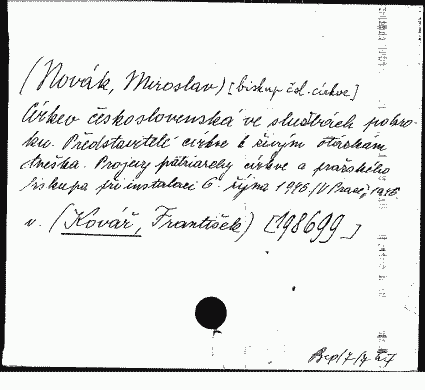 (Novák, Miroslav) [biskup čsl. církve]
Církev československá ve službách pokro-
ku. Představitelé církve k živým otázkám
dneška. Projevy patriarchy církve a pražského
biskupa při instalaci 6. října 1946. (V Praze, 1946.
v. (Kovář, František) [198699]